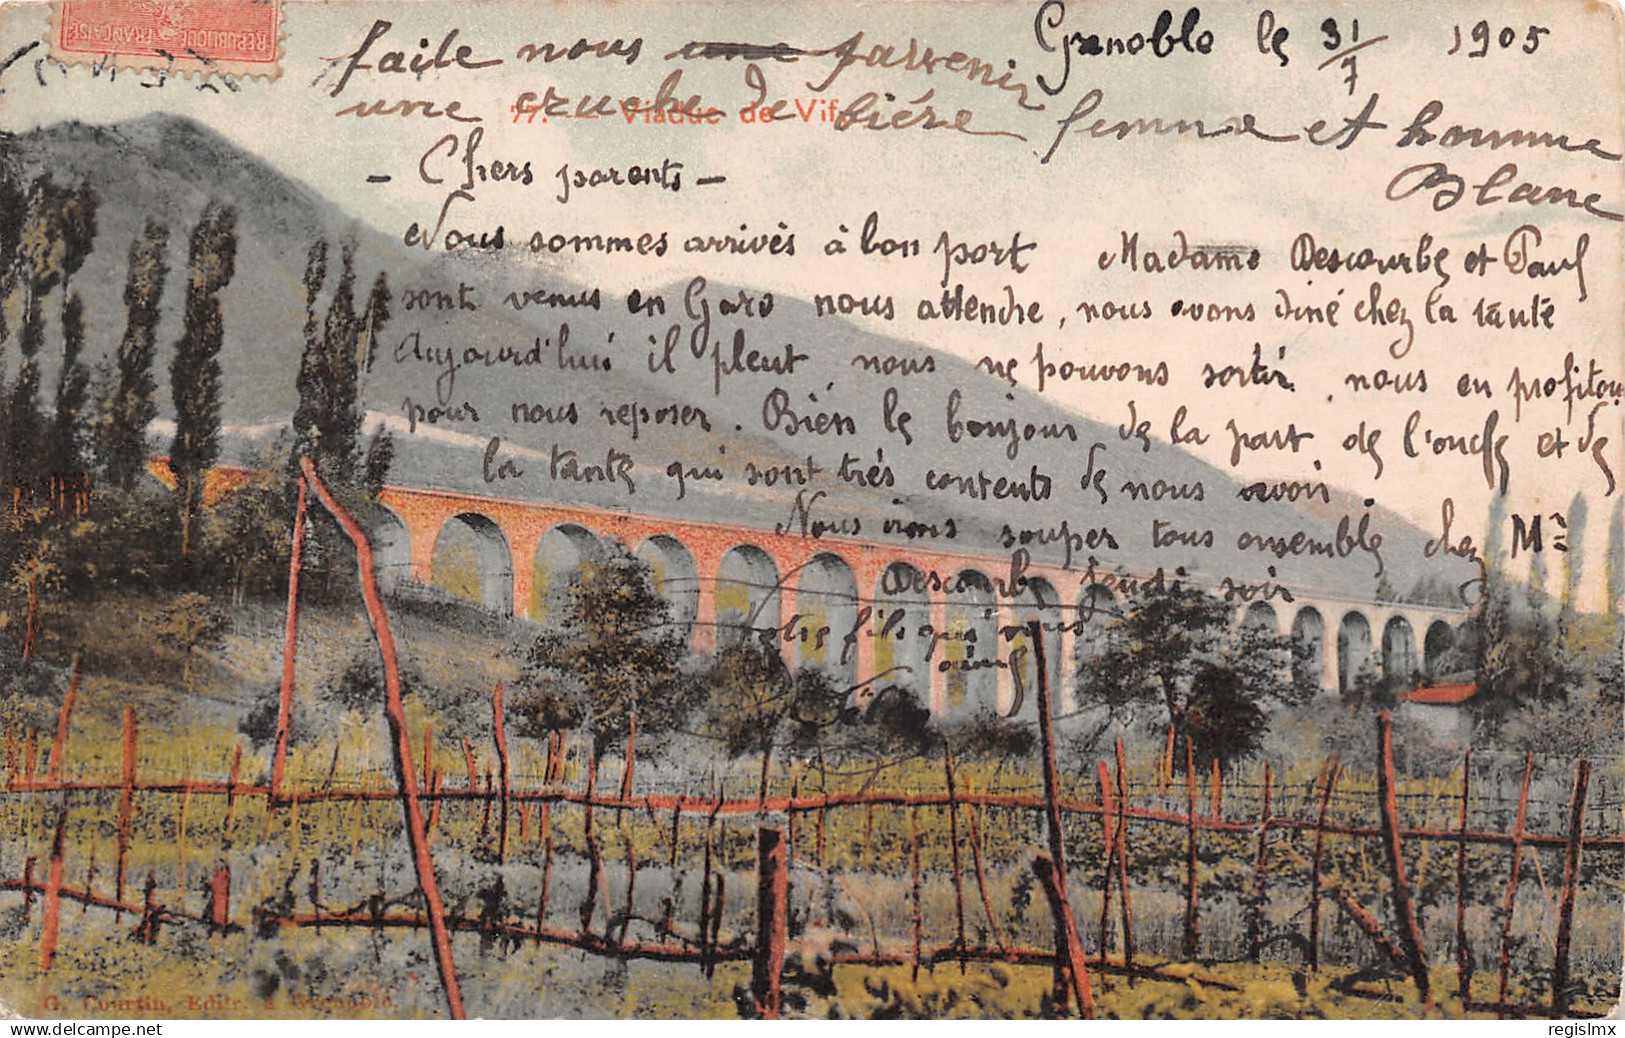 RÉPUBLIQUE FRANÇAISE
Grenoble le 31/7 1905
faite nous une parvenir
une cruche de bière femme et homme
Blanc
77. - Viaduc de Vif
- Chers parents -
Nous sommes arrivés à bon port Madame Descourbe et Paul
sont venus en Gare nous attendre, nous avons diné chez la tante
Aujourd'hui il pleut nous ne pouvons sortir, nous en profitons
pour nous reposer. Bien le bonjour de la part de l'oncle et de
la tante qui sont très contents de nous avoir.
Nous irons souper tous ensemble chez Mr
Descourbe jeudi soir
votre fils qui vous
aime
G. Courtin, Editr. à Grenoble.
regislmx